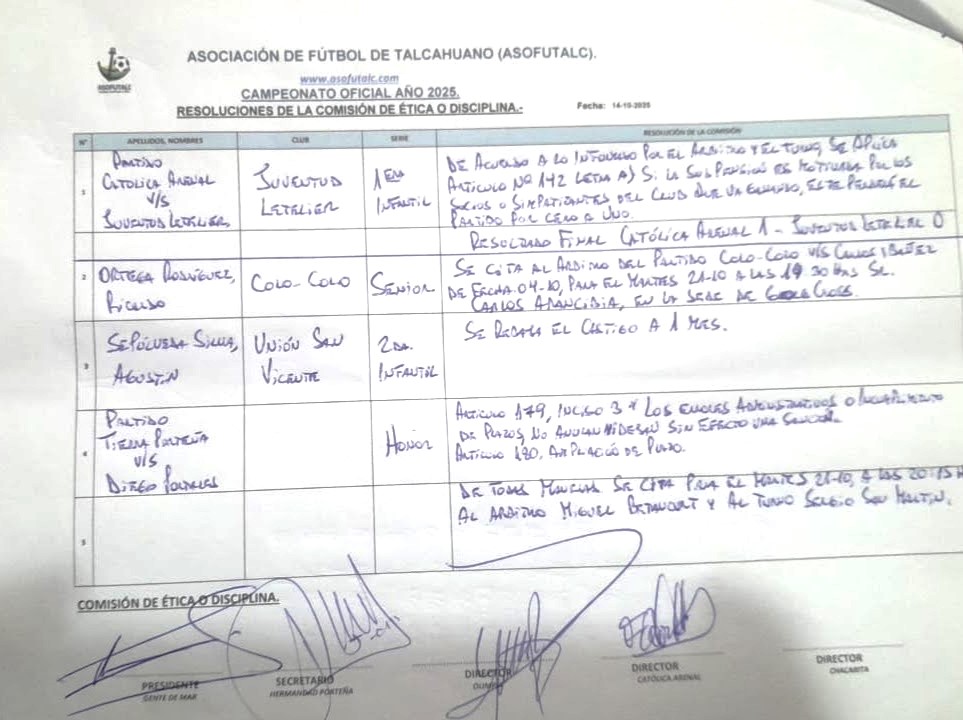 ASOCIACIÓN DE FÚTBOL DE TALCAHUANO (ASOFUTALC).
ASOFUTALC
www.asofutalc.com
CAMPEONATO OFICIAL AÑO 2025.
RESOLUCIONES DE LA COMISIÓN DE ÉTICA O DISCIPLINA.-
Fecha: 14-10-2025
Nº APELLIDOS, NOMBRES CLUB SERIE RESOLUCIÓN DE LA COMISIÓN
1
PARTIDO
CATÓLICA ARENAL
V/S
JUVENTUD LETELIER,
JUVENTUD
LETELIER
1ERA
INFANTIL
DE ACUERDO A LO INFORMADO POR EL ARBITRO Y EL TURNO, SE APLICA
ARTICULO Nº 142 LETRA A) SI LA SUSPENSIÓN ES MOTIVADA POR LOS
SOCIOS O SIMPATIZANTES DEL CLUB QUE VA GANANDO, ESTE PERDERÁ EL
PARTIDO POR CERO A UNO.
RESULTADO FINAL CATÓLICA ARENAL 1 - JUVENTUD LETELIER 0
2
ORTEGA RODRÍGUEZ,
RICARDO
COLO-COLO
SENIOR
SE CITA AL ARBITRO DEL PARTIDO COLO-COLO V/S CARLOS IBAÑEZ
DE FECHA 04-10, PARA EL MARTES 21-10 A LAS 19 30 HRS SR.
CARLOS ARANCIBIA, EN LA SEDE DE CROSS.
3
SEPÚLVEDA SILVA,
AGUSTIN
UNIÓN SAN
VICENTE
2DA.
INFANTIL
SE REBAJA EL CASTIGO A 1 MES.
4
PARTIDO
TIERRA PORTEÑA
V/S
DIEGO PORTALES
HONOR
ARTICULO 179, INCISO 3 * LOS ERRORES ADMINISTRATIVOS O INCUMPLIMIENTO
DE PLAZOS, NO ANULAN NI DEJAN SIN EFECTO UNA SANCIÓN.
ARTICULO 180, AMPLIACIÓN DE PLAZO.
5
DE TODAS MANERAS SE CITA PARA EL MARTES 21-10, A LAS 20:15 H
AL ARBITRO MIGUEL BETANCURT Y AL TURNO SERGIO SAN MARTIN.
COMISIÓN DE ÉTICA O DISCIPLINA.
PRESIDENTE
GENTE DE MAR
SECRETARIO
HERMANDAD PORTEÑA
DIRECTOR
DIRECTOR
CATÓLICA ARENAL
DIRECTOR
CHACARITA